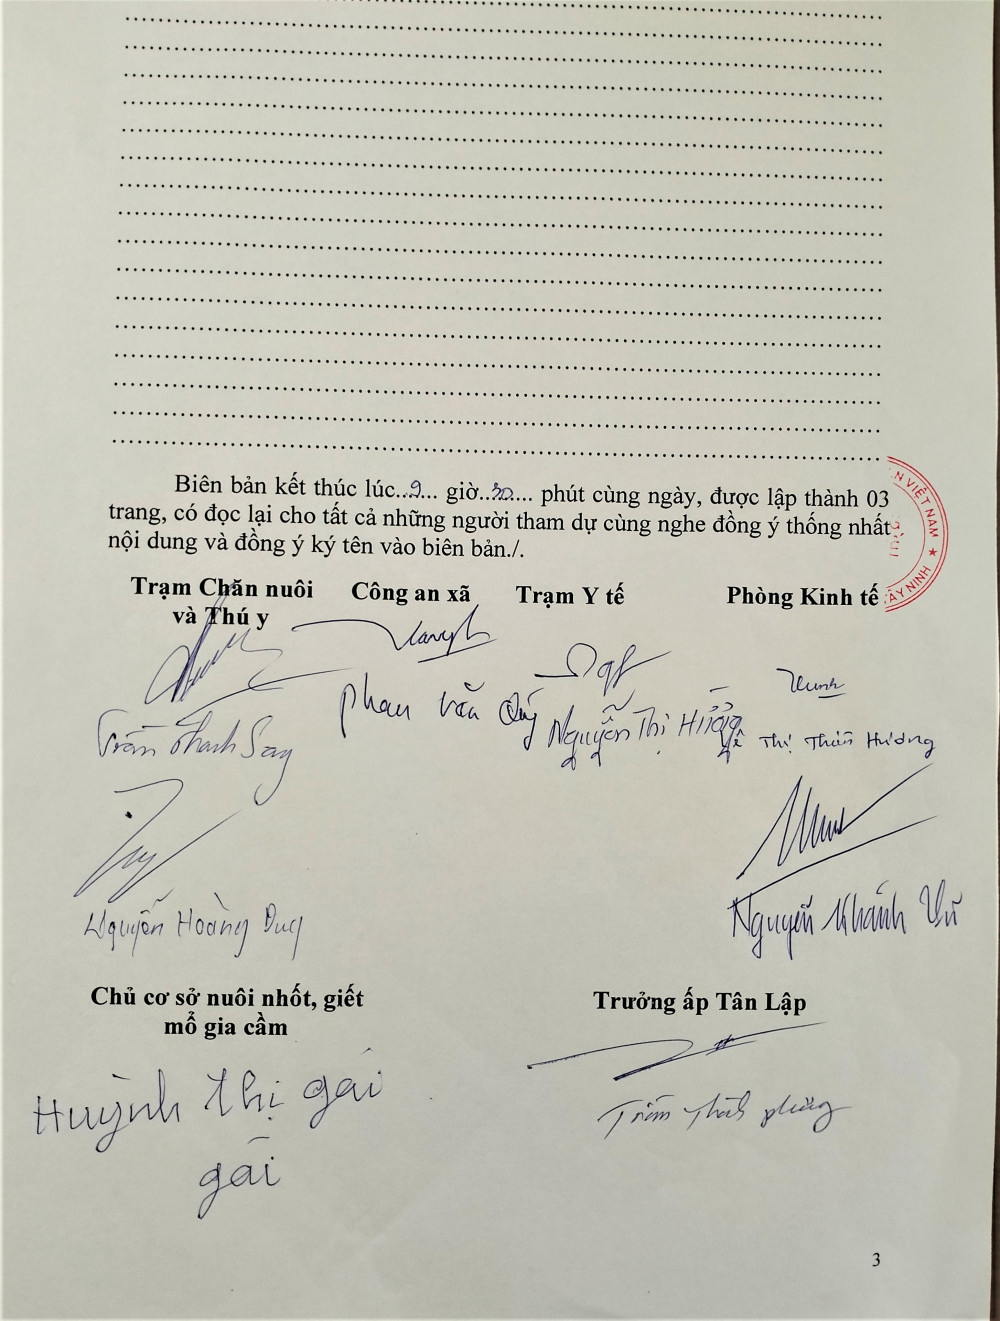 Biên bản kết thúc lúc..9... giờ..30.... phút cùng ngày, được lập thành 03
trang, có đọc lại cho tất cả những người tham dự cùng nghe đồng ý thống nhất
nội dung và đồng ý ký tên vào biên bản./.
N VIỆT NAM ★
ÂY NINH
Trạm Chăn nuôi
và Thú y
Công an xã
Trạm Y tế
Phòng Kinh tế
Phan Văn Quý
Nguyễn Thị Hưởng
Thị Thu Hương
Trần Thanh
Nguyễn Hoàng Duy
Nguyễn Khánh Vũ
Chủ cơ sở nuôi nhốt, giết
mổ gia cầm
Trưởng ấp Tân Lập
Huỳnh Thị gái
gái
Trần
3